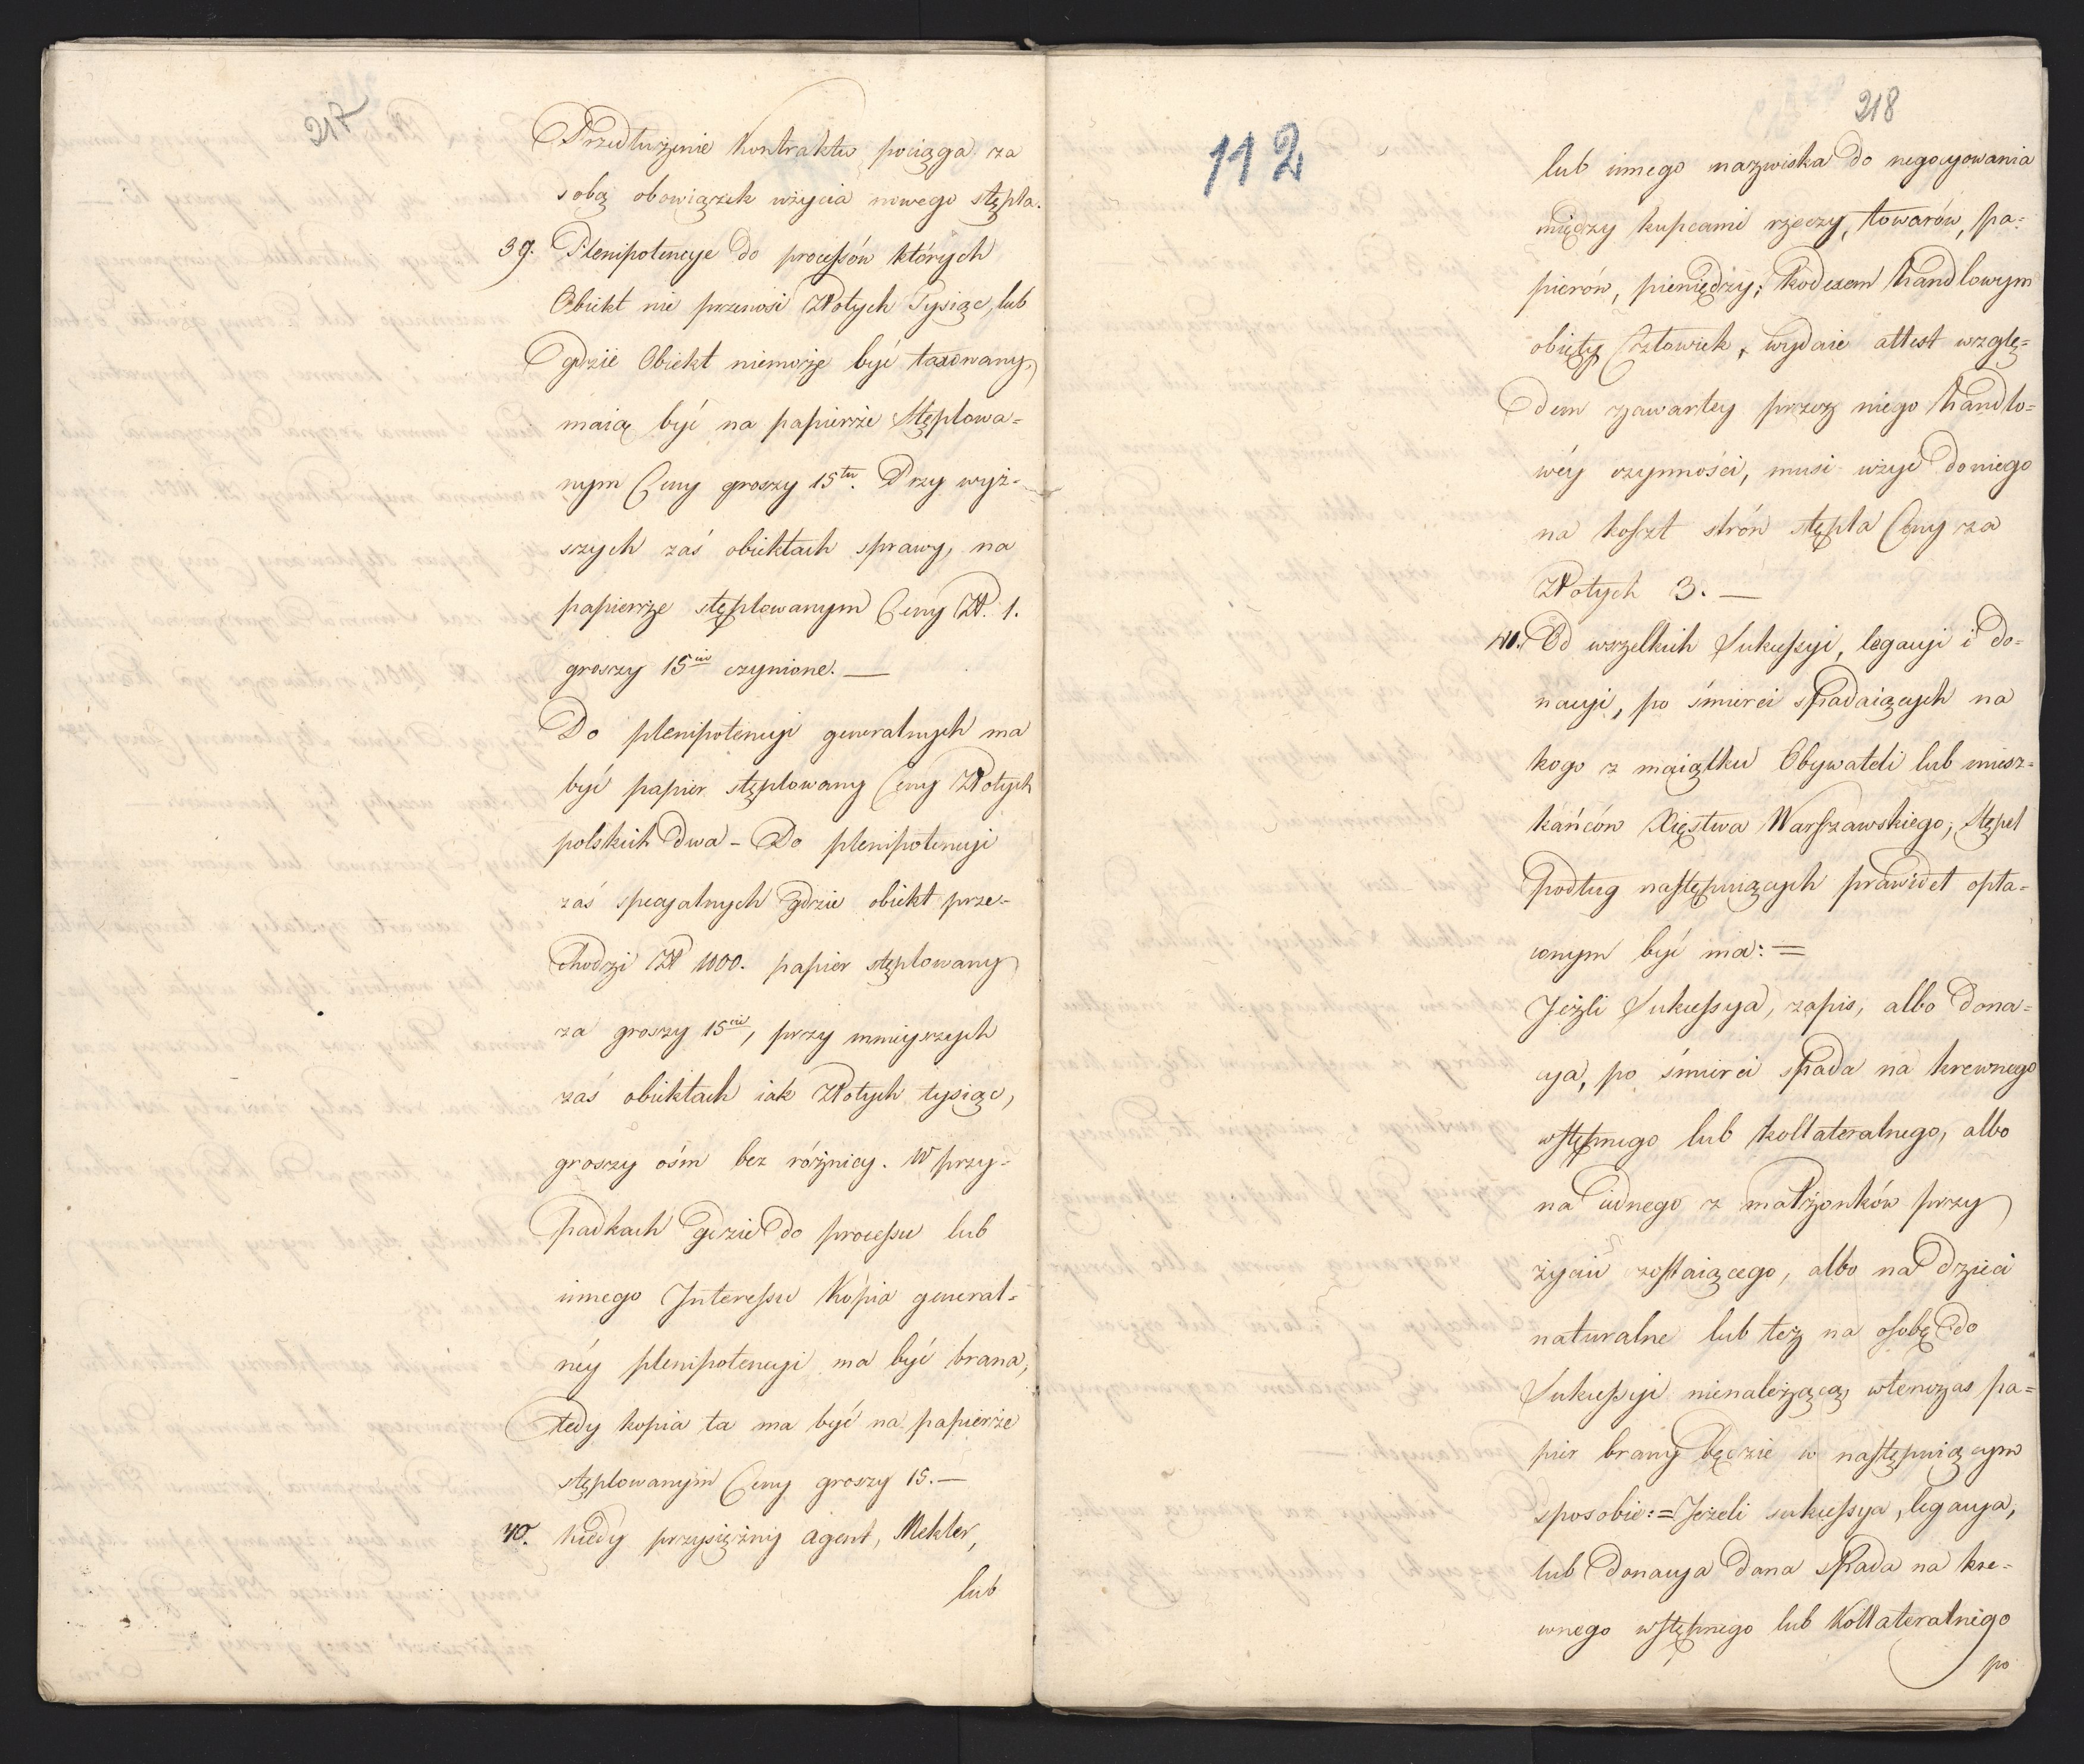 217
Przedłużenie Kontraktu pociąga za
sobą obowiązek użycia nowego stępla.
39. Plenipotencye do processów których
Obiekt nie przenosi Złotych Tysiąc, lub
gdzie Obiekt niemoże być taxowany,
maią być na papierze stęplowa=
nym Ceny groszy 15tu. Przy wyż-
szych zaś obiektach sprawy, na
papierze stęplowanym Ceny Zł. 1.
groszy 15cie czynione. —
Do plenipotencyi generalnych ma
być papier stęplowany Ceny Złotych
polskich Dwa – Do plenipotencyi
zaś specyalnych gdzie obiekt prze-
chodzi Zł 1000. papier stęplowany
za groszy 15cie, przy mnieyszych
zaś obiektach iak Złotych tysiąc,
groszy ośm bez różnicy. W przy-
padkach gdzie do processu lub
innego Interessu Kopia general=
néy plenipotencyi ma być brana,
tedy kopia ta ma być na papierze
stęplowanym Ceny groszy 15. —
40. Kiedy przysiężny agent, Mekler,
lub
112
218
lub innego nazwiska do negocyowania
między kupcami rzeczy, towarów, pa=
pierów, pieniędzy; kodexem handlowym
obięty Człowiek, wydaie attest wzglę=
dem zawartey przez niego handlo=
wéy czynności, musi użyć do niego
na koszt strón stępla Ceny za
Złotych 3. —
41. Od wszelkich Sukcessyi, legacyi i do=
nacyi, po śmierci spadaiących na
kogo z maiątku Obywateli lub miesz=
kańców Xięstwa Warszawskiego, Stępel
podług następuiących prawideł opła=
conym być ma: =
Jeżli Sukcessya, zapis, albo dona=
cya, po śmierci spada na krewnego
wstępnego lub kollateralnego, albo
na iednego z małżonków przy
życiu zostaiącego, albo na dzieci
naturalne lub też na osobę do
Sukcessyi nienależącą, wtenczas pa=
pier brany będzie w następuiącym
sposobie: = Jeżeli sukcessya, legacya,
lub donacya dana spada na kre-
wnego wstępnego lub Kollateralnego
po